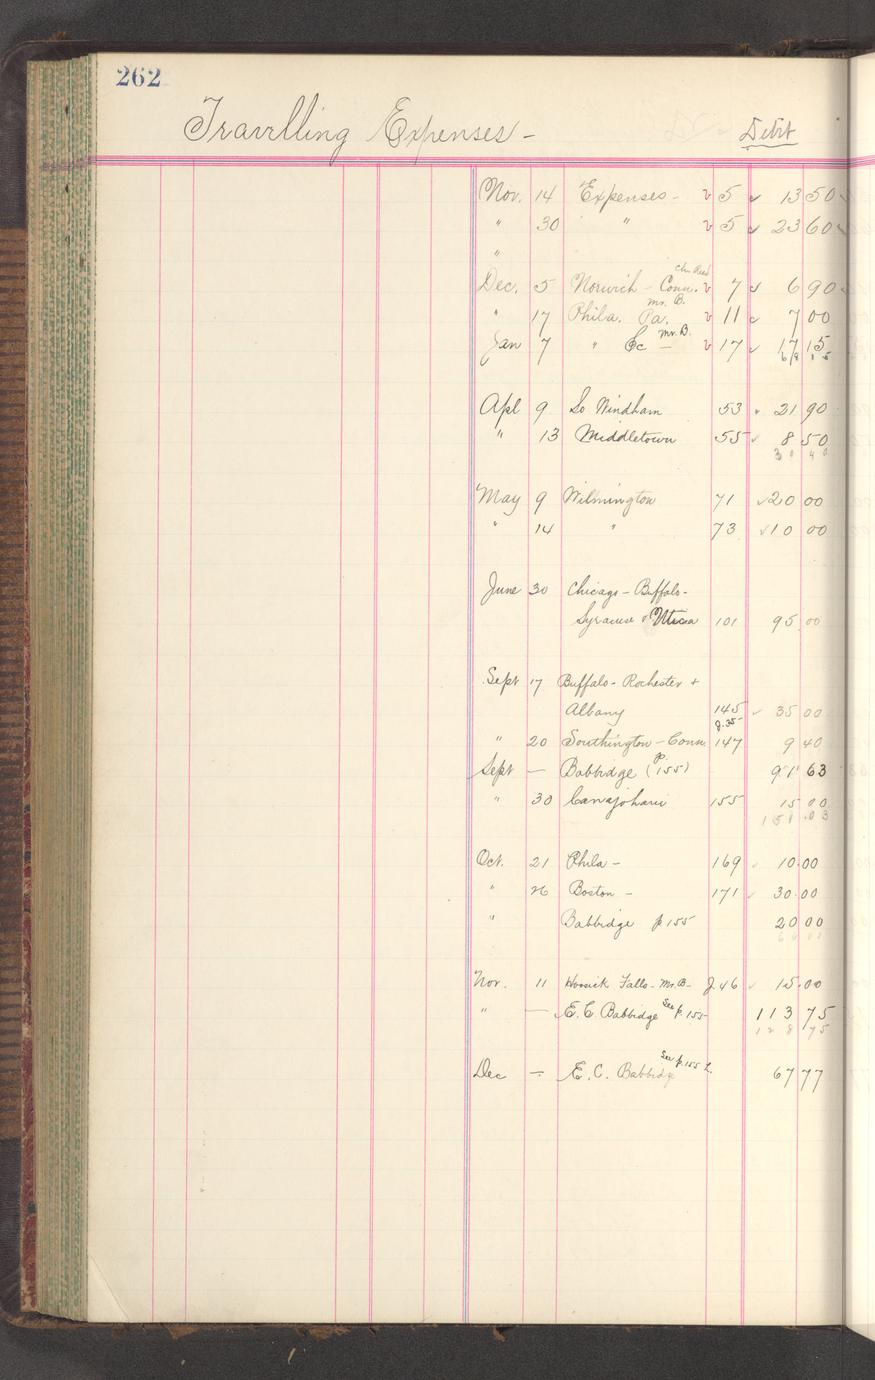 262
Travelling Expenses - Debit
Nov. 14 Expenses - 5 13 50
" 30 " 5 23 60
"
Dec. 5 Norwich - Conn. 7 6 90
17 Phila. Pa. Mr. B. 11 7 00
Jan 7 " &c - Mr. B. 17 17 15
68 15
Apl 9 So Windham 53 21 90
" 13 Middletown 55 8 50
30 40
May 9 Wilmington 71 20 00
" 14 " 73 10 00
June 30 Chicago - Buffalo -
Syracuse & Utica 101 95 00
Sept 17 Buffalo - Rochester +
Albany 145 35 00
J. 35
" 20 Southington - Conn 147 9 40
Sept — Babbidge (p 155) 91 63
" 30 Canajoharie 155 15 00
151 03
Oct. 21 Phila - 169 10.00
" 26 Boston - 171 30.00
" Babbidge p 155 20 00
60 00
Nov. 11 Hoosick Falls - Mr. B - J. 46 15.00
" — E. C. Babbidge See p. 155 113 75
128 75
Dec — E. C. Babbidge See p. 155 L. 67 77